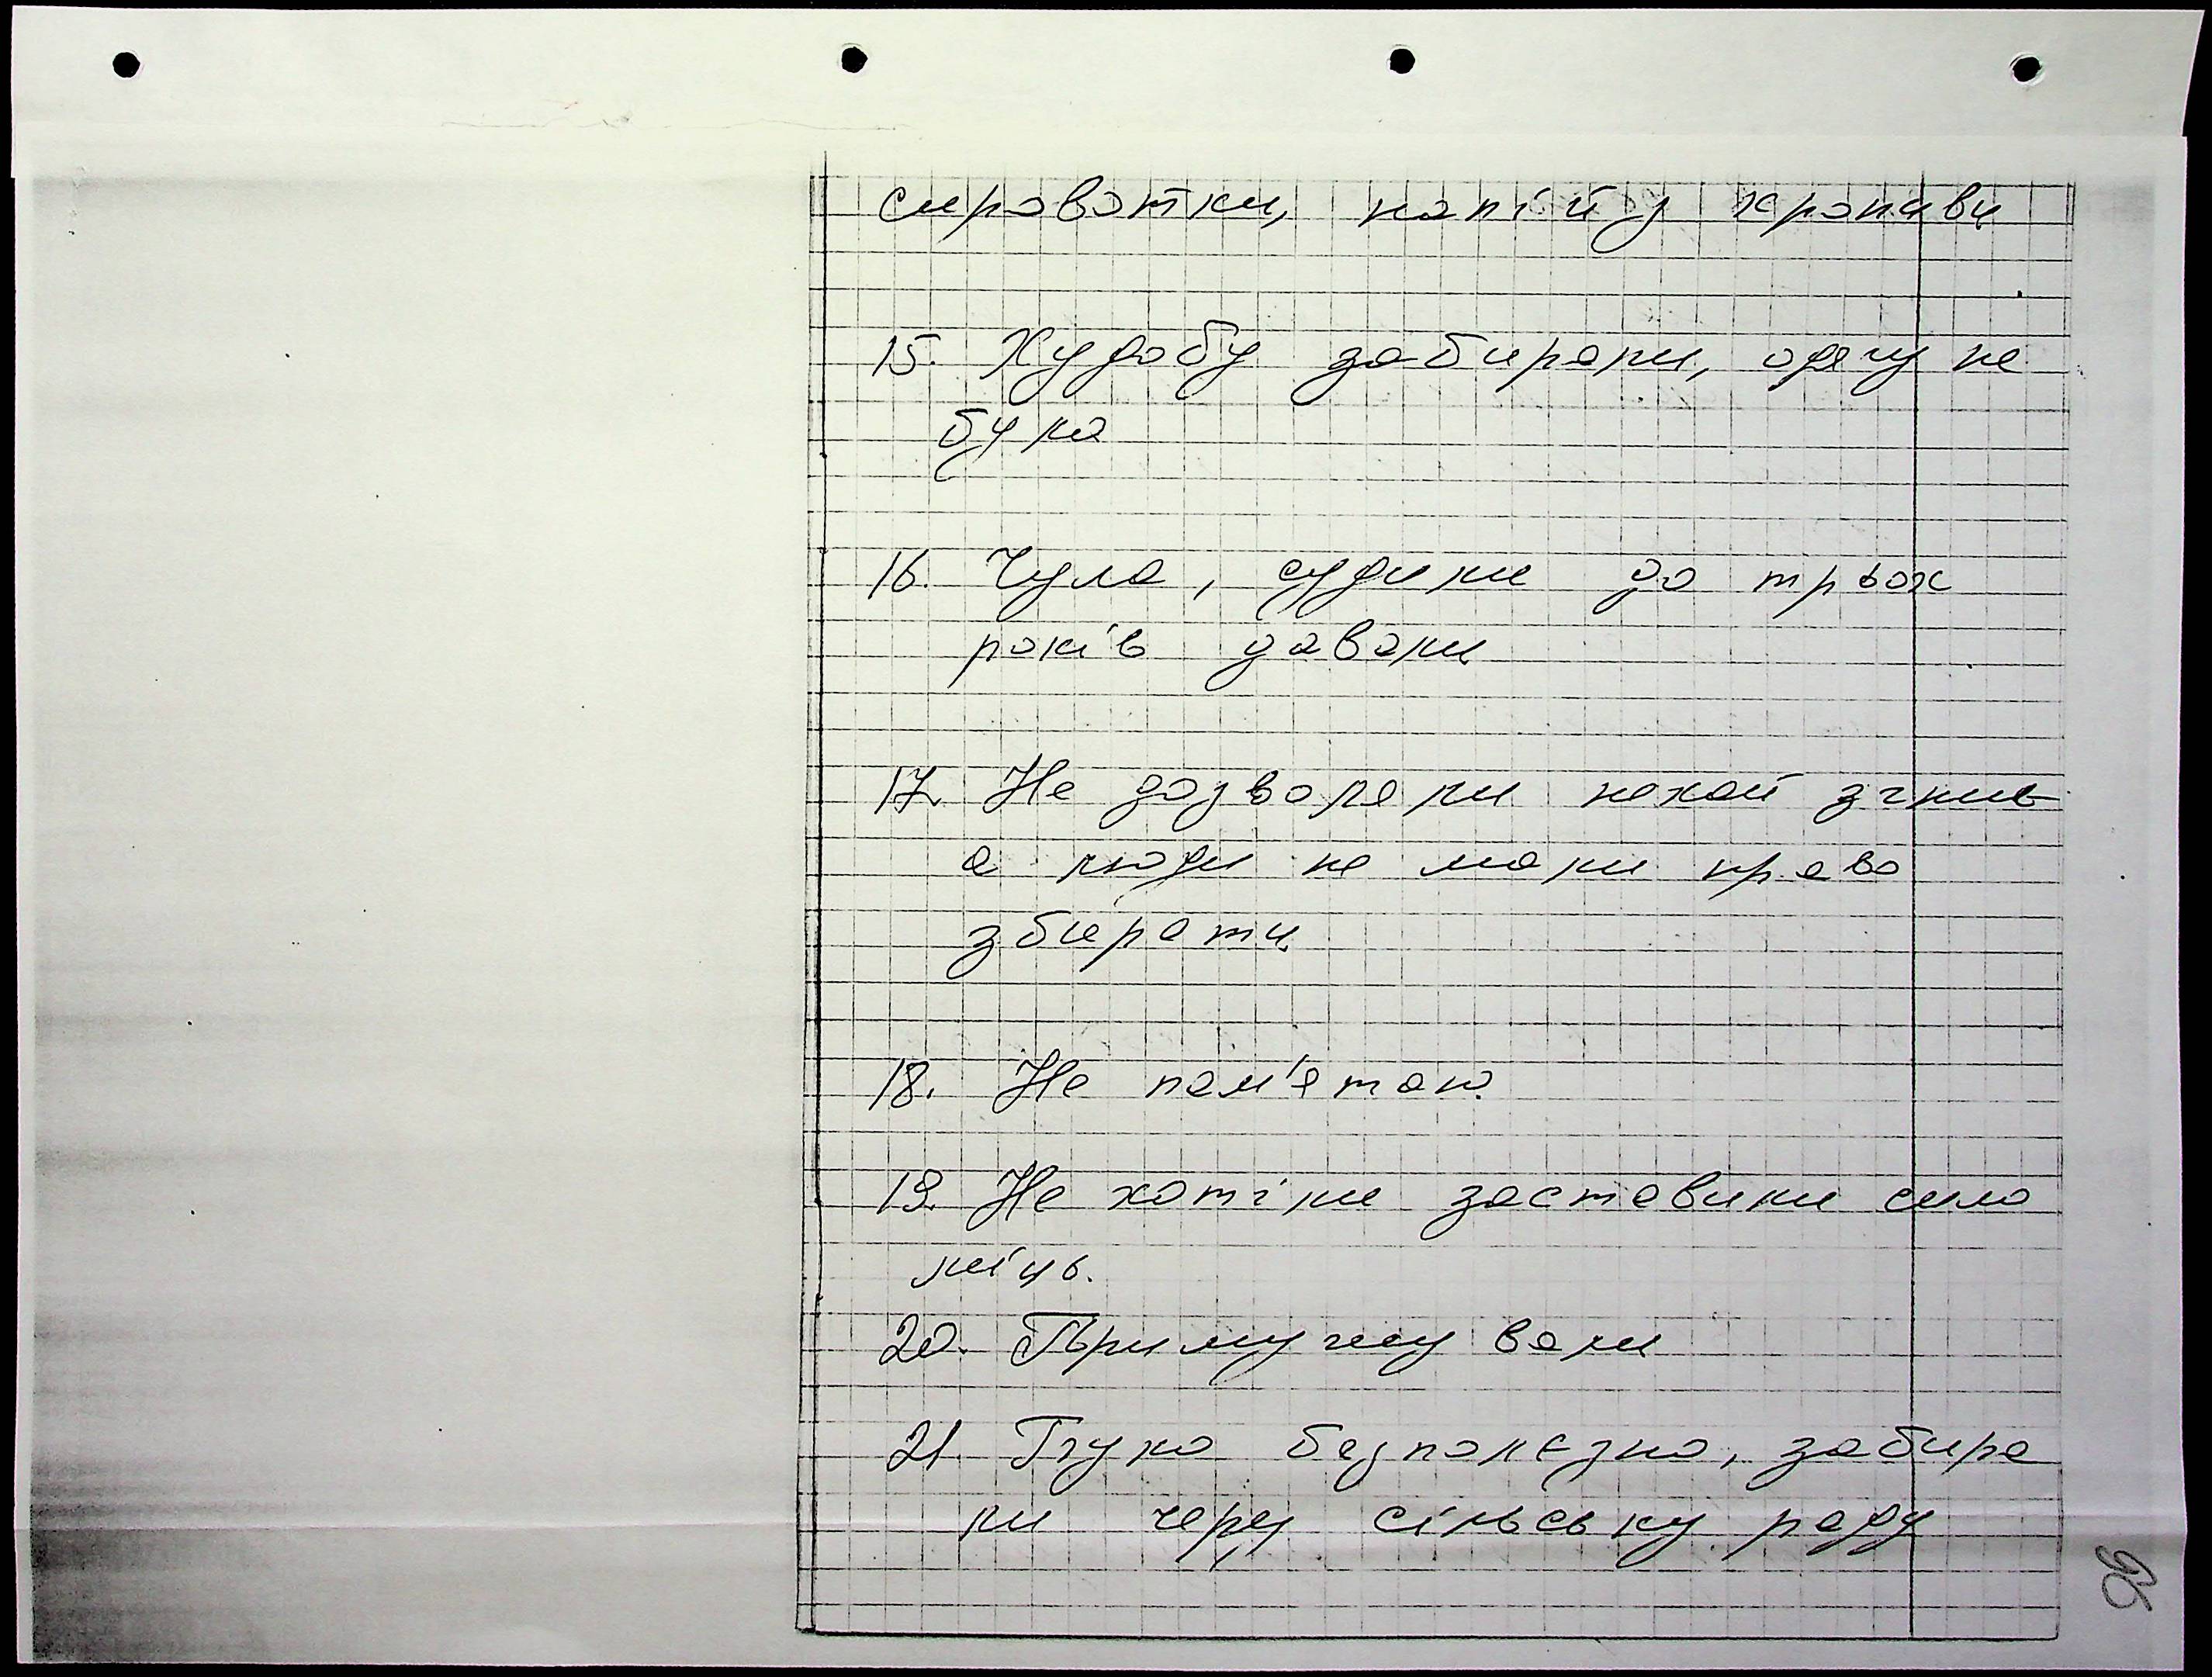 сироватки, напій з кропиви
15. Худобу забирали, одягу не
було
16. Чула, судили до трьох
років давали
17. Не дозволяли нехай згние
а люди не мали право
збирати
18. Не пам'ятаю.
19. Не хотіли заставили сило
міць.
20. Примушували
21. Було безполєзно, забира
ли через сільську раду